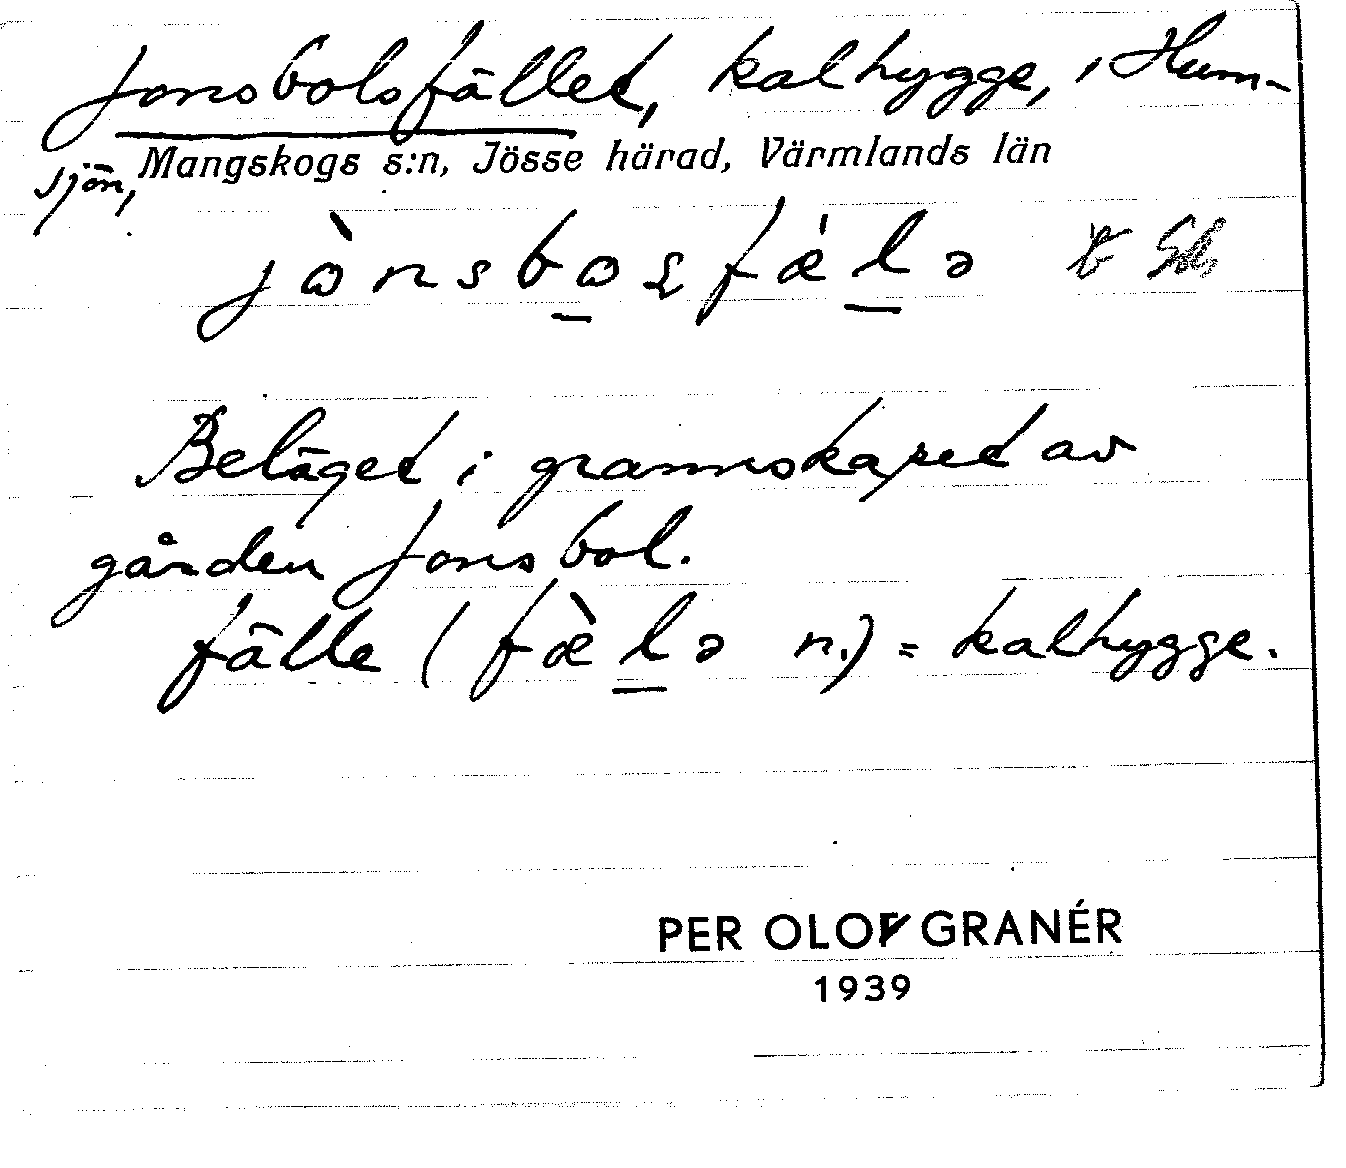 Jonsbolsfället, kalhygge, i Hum-
sjön, Mangskogs s:n, Jösse härad, Värmlands län
jònsbo̲sfǽl̲ə
Beläget i grannskapet av
gården Jonsbol.
fälle (fæ̀l̲ə n.) = kalhygge.
PER OLOF GRANÉR
1939